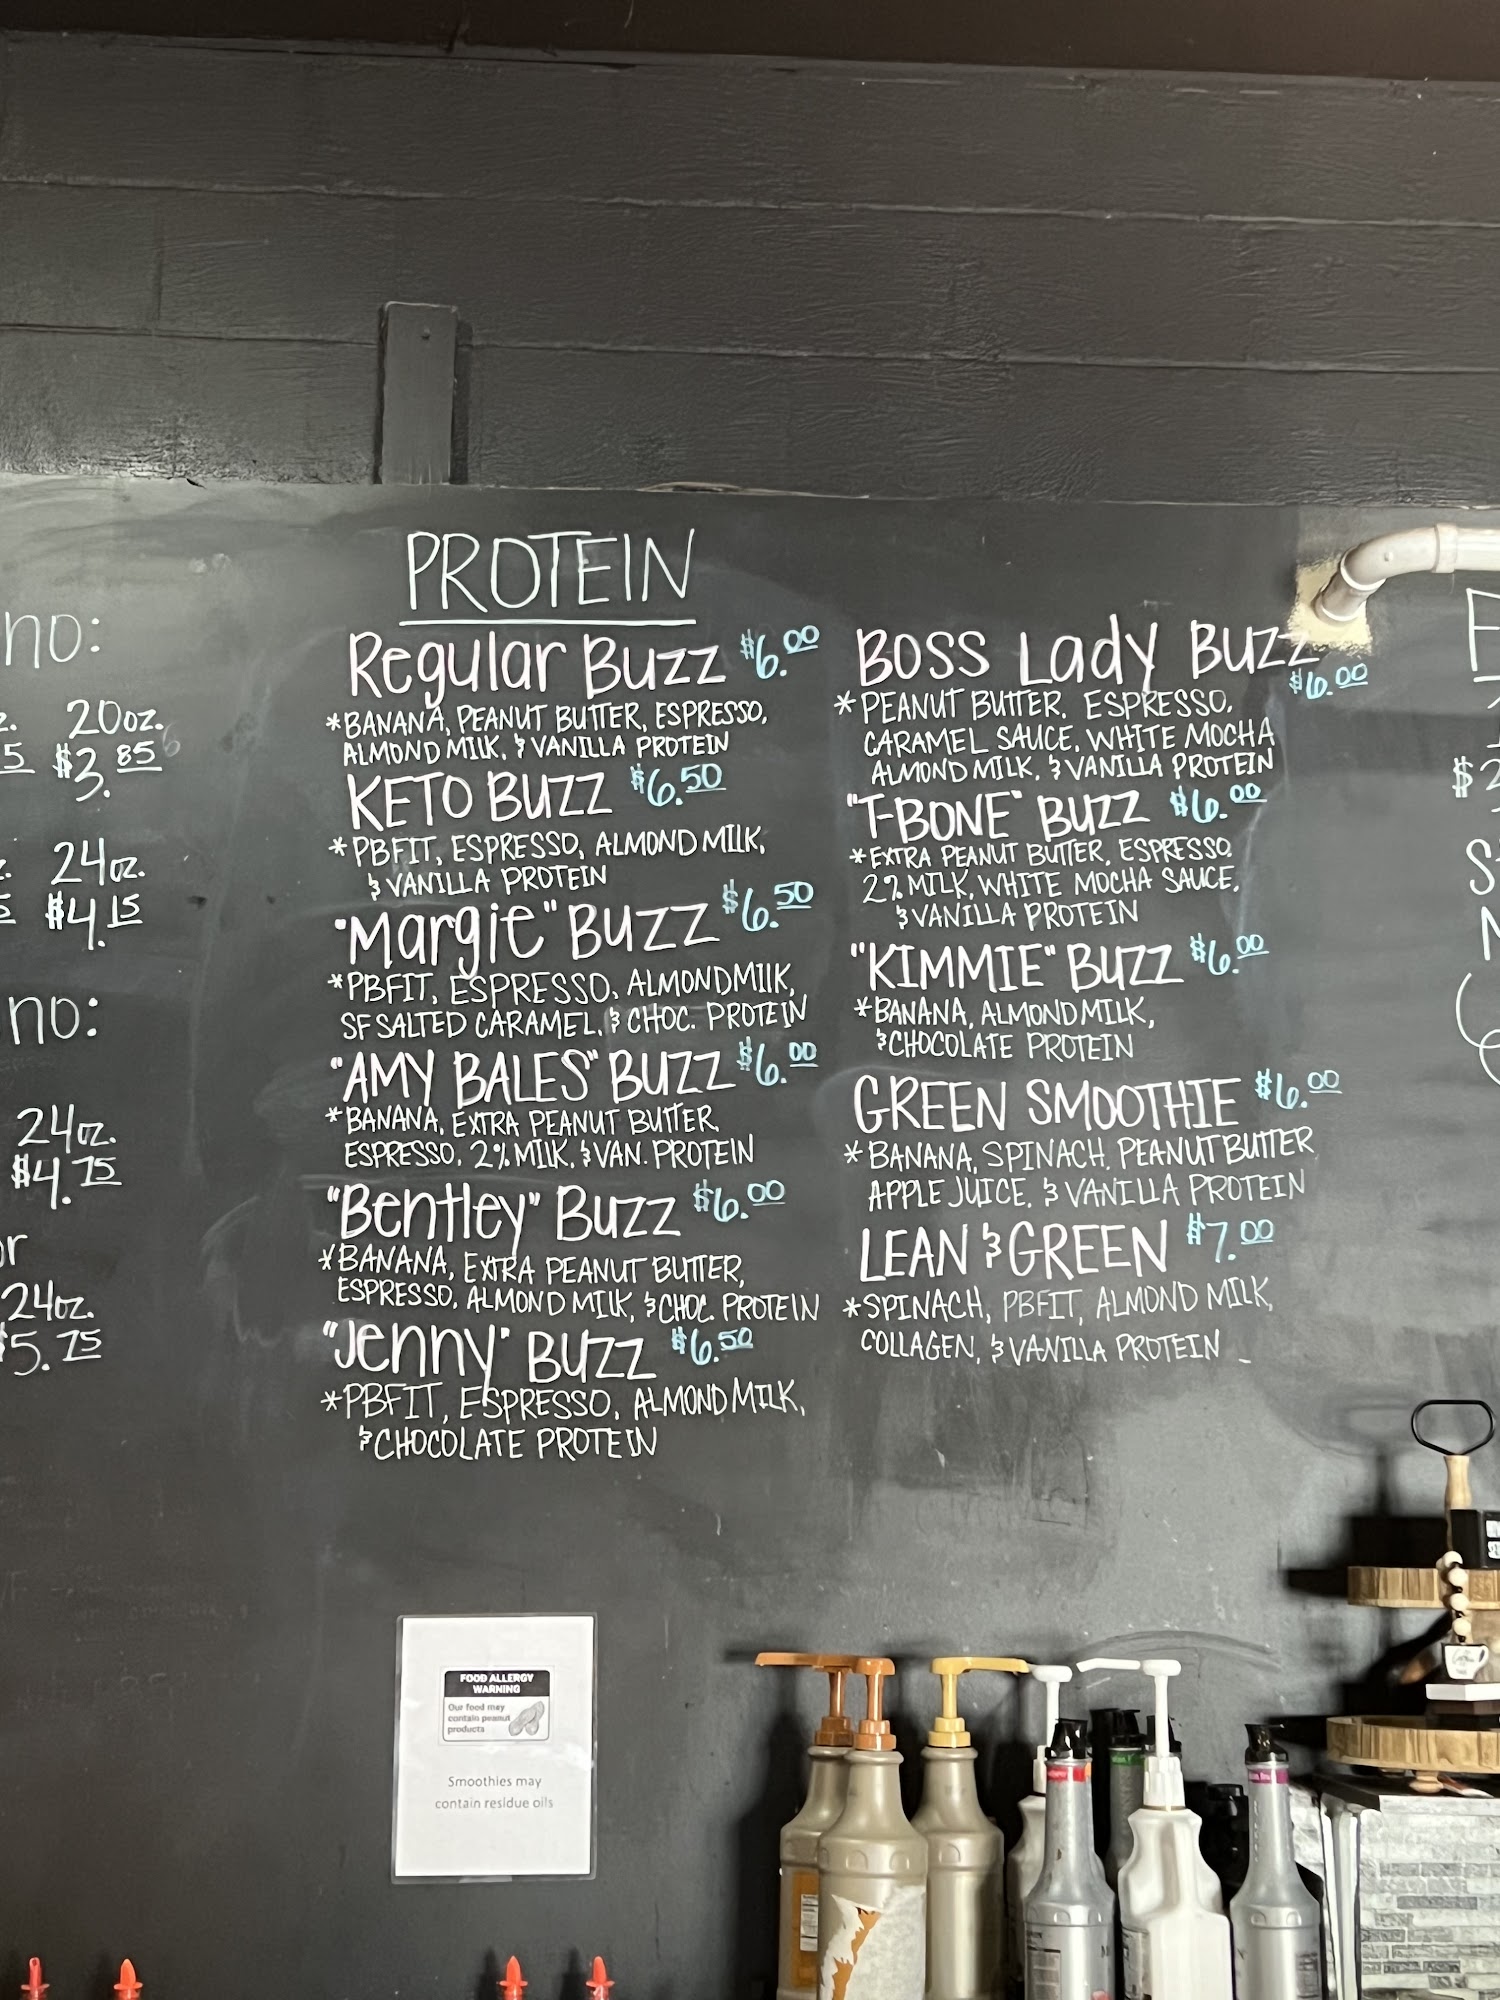 no:
20oz.
$3.85
24oz.
$4.15
no:
24oz.
$4.75
or
24oz.
$5.75
PROTEIN
Regular Buzz $6.00
*BANANA, PEANUT BUTTER, ESPRESSO,
ALMOND MILK, & VANILLA PROTEIN
KETO BUZZ $6.50
*PBFIT, ESPRESSO, ALMOND MILK,
& VANILLA PROTEIN
"Margie" Buzz $6.50
*PBFIT, ESPRESSO, ALMOND MILK,
SF SALTED CARAMEL, & CHOC. PROTEIN
"AMY BALES" BUZZ $6.00
*BANANA, EXTRA PEANUT BUTTER,
ESPRESSO, 2% MILK, & VAN. PROTEIN
"Bentley" Buzz $6.00
*BANANA, EXTRA PEANUT BUTTER,
ESPRESSO, ALMOND MILK, & CHOC. PROTEIN
"Jenny" Buzz $6.50
*PBFIT, ESPRESSO, ALMOND MILK,
& CHOCOLATE PROTEIN
BOSS Lady BUZZ
$6.00
*PEANUT BUTTER, ESPRESSO,
CARAMEL SAUCE, WHITE MOCHA
ALMOND MILK, & VANILLA PROTEIN
"T-BONE" BUZZ $6.00
*EXTRA PEANUT BUTTER, ESPRESSO,
2% MILK, WHITE MOCHA SAUCE,
& VANILLA PROTEIN
"KIMMIE" BUZZ $6.00
*BANANA, ALMOND MILK,
& CHOCOLATE PROTEIN
GREEN SMOOTHIE $6.00
*BANANA, SPINACH, PEANUT BUTTER
APPLE JUICE, & VANILLA PROTEIN
LEAN & GREEN $7.00
*SPINACH, PBFIT, ALMOND MILK,
COLLAGEN, & VANILLA PROTEIN
FOOD ALLERGY
WARNING
Our food may
contain peanut
products
Smoothies may
contain residue oils